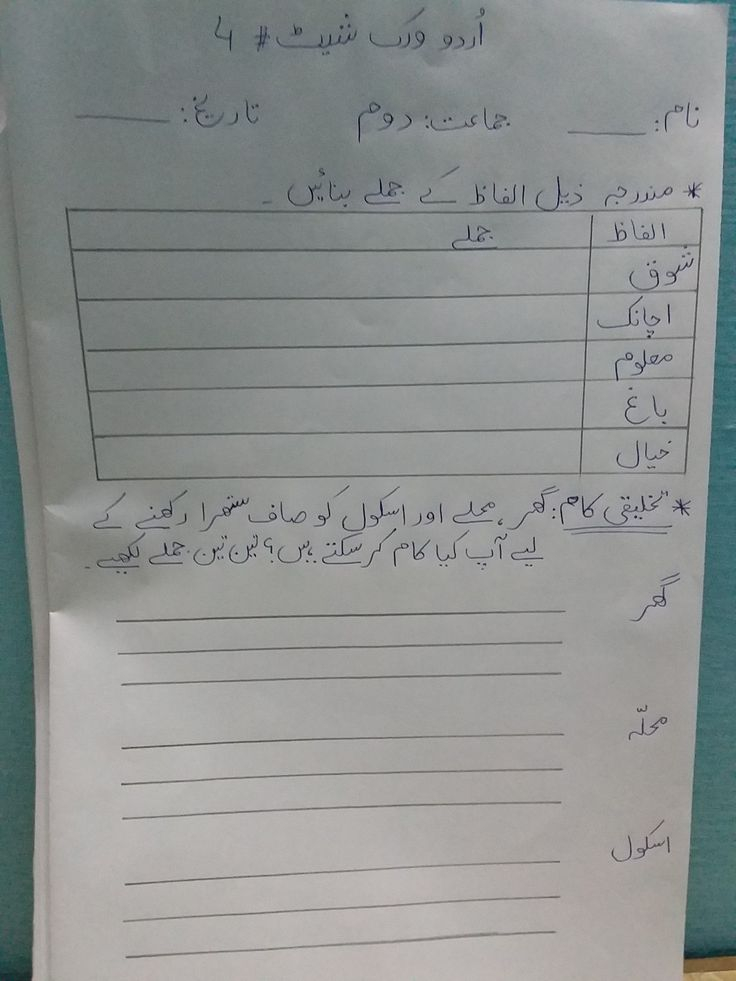 اُردو ورک شیٹ # 4
نام: ____ جماعت: دوم تاریخ: ____
* مندرجہ ذیل الفاظ کے جملے بنائیں ۔
الفاظ جملے
شوق
اچانک
معلوم
باغ
خیال
* تخلیقی کام: گھر، محلے اور اسکول کو صاف ستھرا رکھنے کے
لیے آپ کیا کام کر سکتے ہیں؟ تین تین جملے لکھیے۔
گھر
محلّہ
اسکول